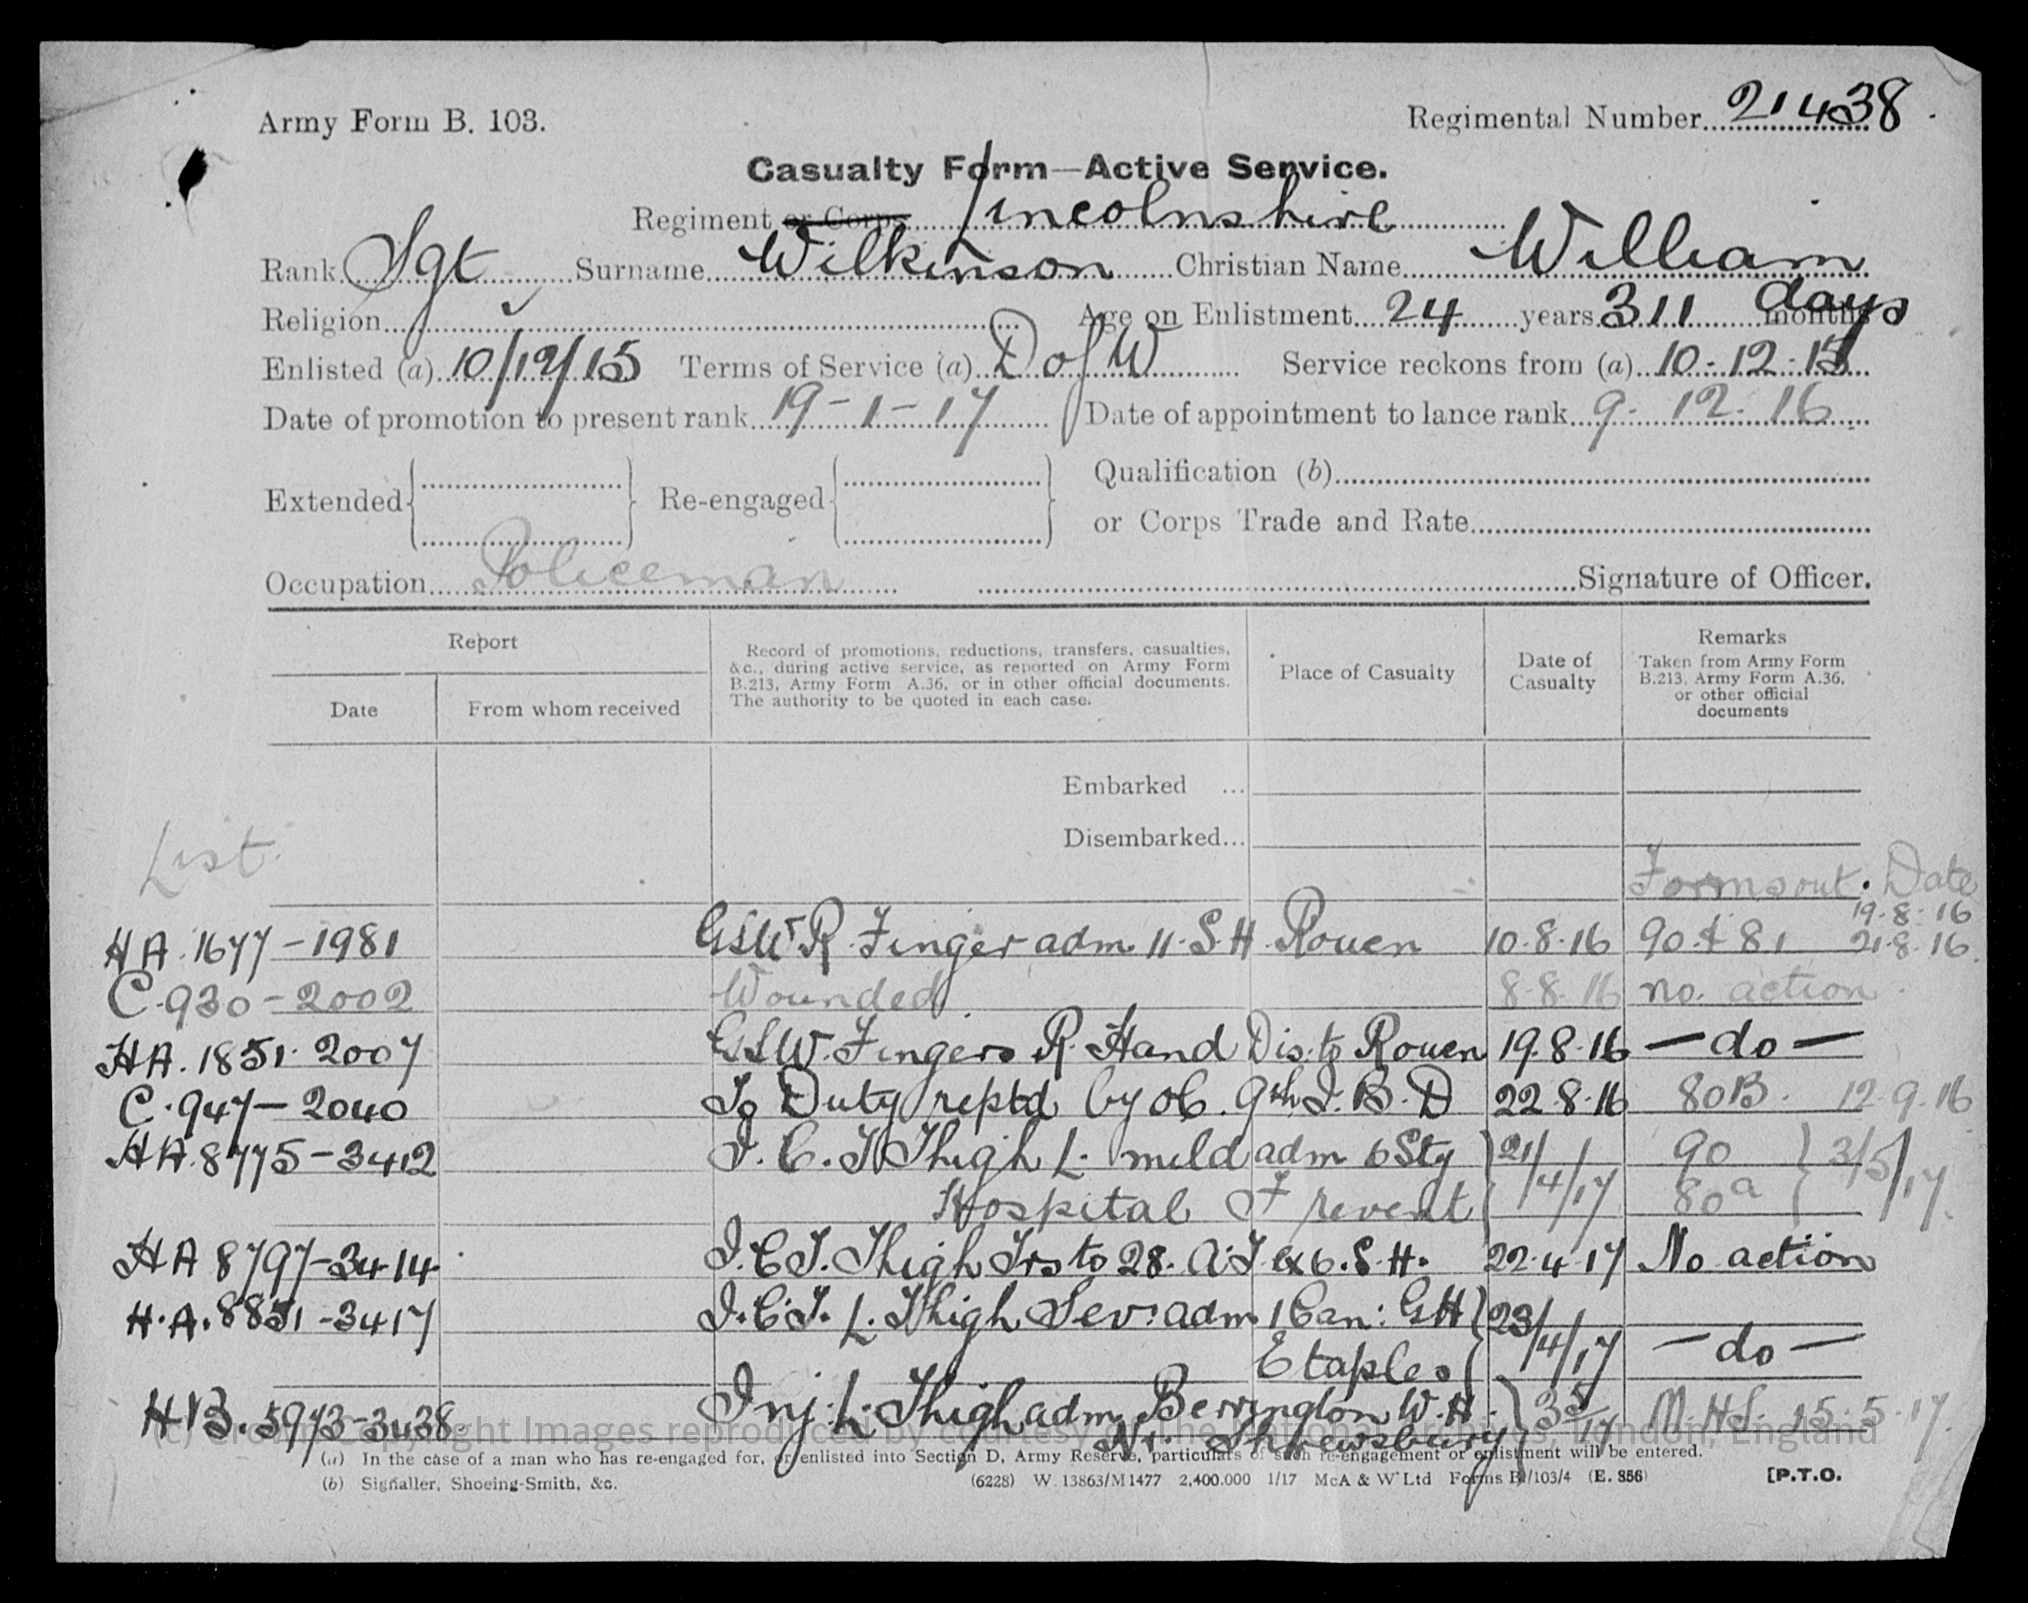 Army Form B. 103.
Regimental Number 21438
Casualty Form—Active Service.
Regiment or Corps Lincolnshire
Rank Sgt Surname Wilkinson Christian Name William
Religion Age on Enlistment 24 years 311 months days
Enlisted (a) 10/12/15 Terms of Service (a) D of W Service reckons from (a) 10.12.15
Date of promotion to present rank 19-1-17 Date of appointment to lance rank 9.12.16
Extended Re-engaged Qualification (b)
or Corps Trade and Rate
Occupation Policeman Signature of Officer.
Report
Date
From whom received
Record of promotions, reductions, transfers, casualties,
&c., during active service, as reported on Army Form
B.213, Army Form A.36, or in other official documents.
The authority to be quoted in each case.
Place of Casualty
Date of
Casualty
Remarks
Taken from Army Form
B.213, Army Form A.36,
or other official
documents
Embarked ...
Disembarked...
List. Forms out. Date
19.8.16
HA. 1677-1981 GSW R. Finger adm 11.S.H. Rouen 10.8.16 90 & 81 21.8.16.
C.930-2002 Wounded 8.8.16 no. action.
HA. 1851. 2007 GSW. Fingers R. Hand Dis. to Rouen 19.8.16 — do —
C.947-2040 To Duty reptd by OC. 9th I.B.D 22.8.16 80B. 12.9.16
HA.8775-3412 I.C.T Thigh L. mild adm 6 Sty 21/4/17 90 3/5/17.
Hospital Frevent 80a
HA 8797-3414 I.C.T. Thigh Trs to 28. A.T. ex 6.S.H. 22.4.17 No action
H.A. 8851-3417 I.C.T. L. Thigh Sev: adm 1 Can: GH 23/4/17
Etaples — do —
HB. 5973-3438 Inj. L. Thigh adm Berrington W.H. 3 5/17 M.H.S. 15.5.17.
Nr. Shrewsbury
(c) Crown Copyright Images reproduced by courtesy of The National Archives, London, England
(a) In the case of a man who has re-engaged for, or enlisted into Section D, Army Reserve, particulars of such re-engagement or enlistment will be entered.
(b) Signaller, Shoeing-Smith, &c. (6228) W. 13863/M1477 2,400.000 1/17 McA & W Ltd Forms B/103/4 (E. 856) [P.T.O.